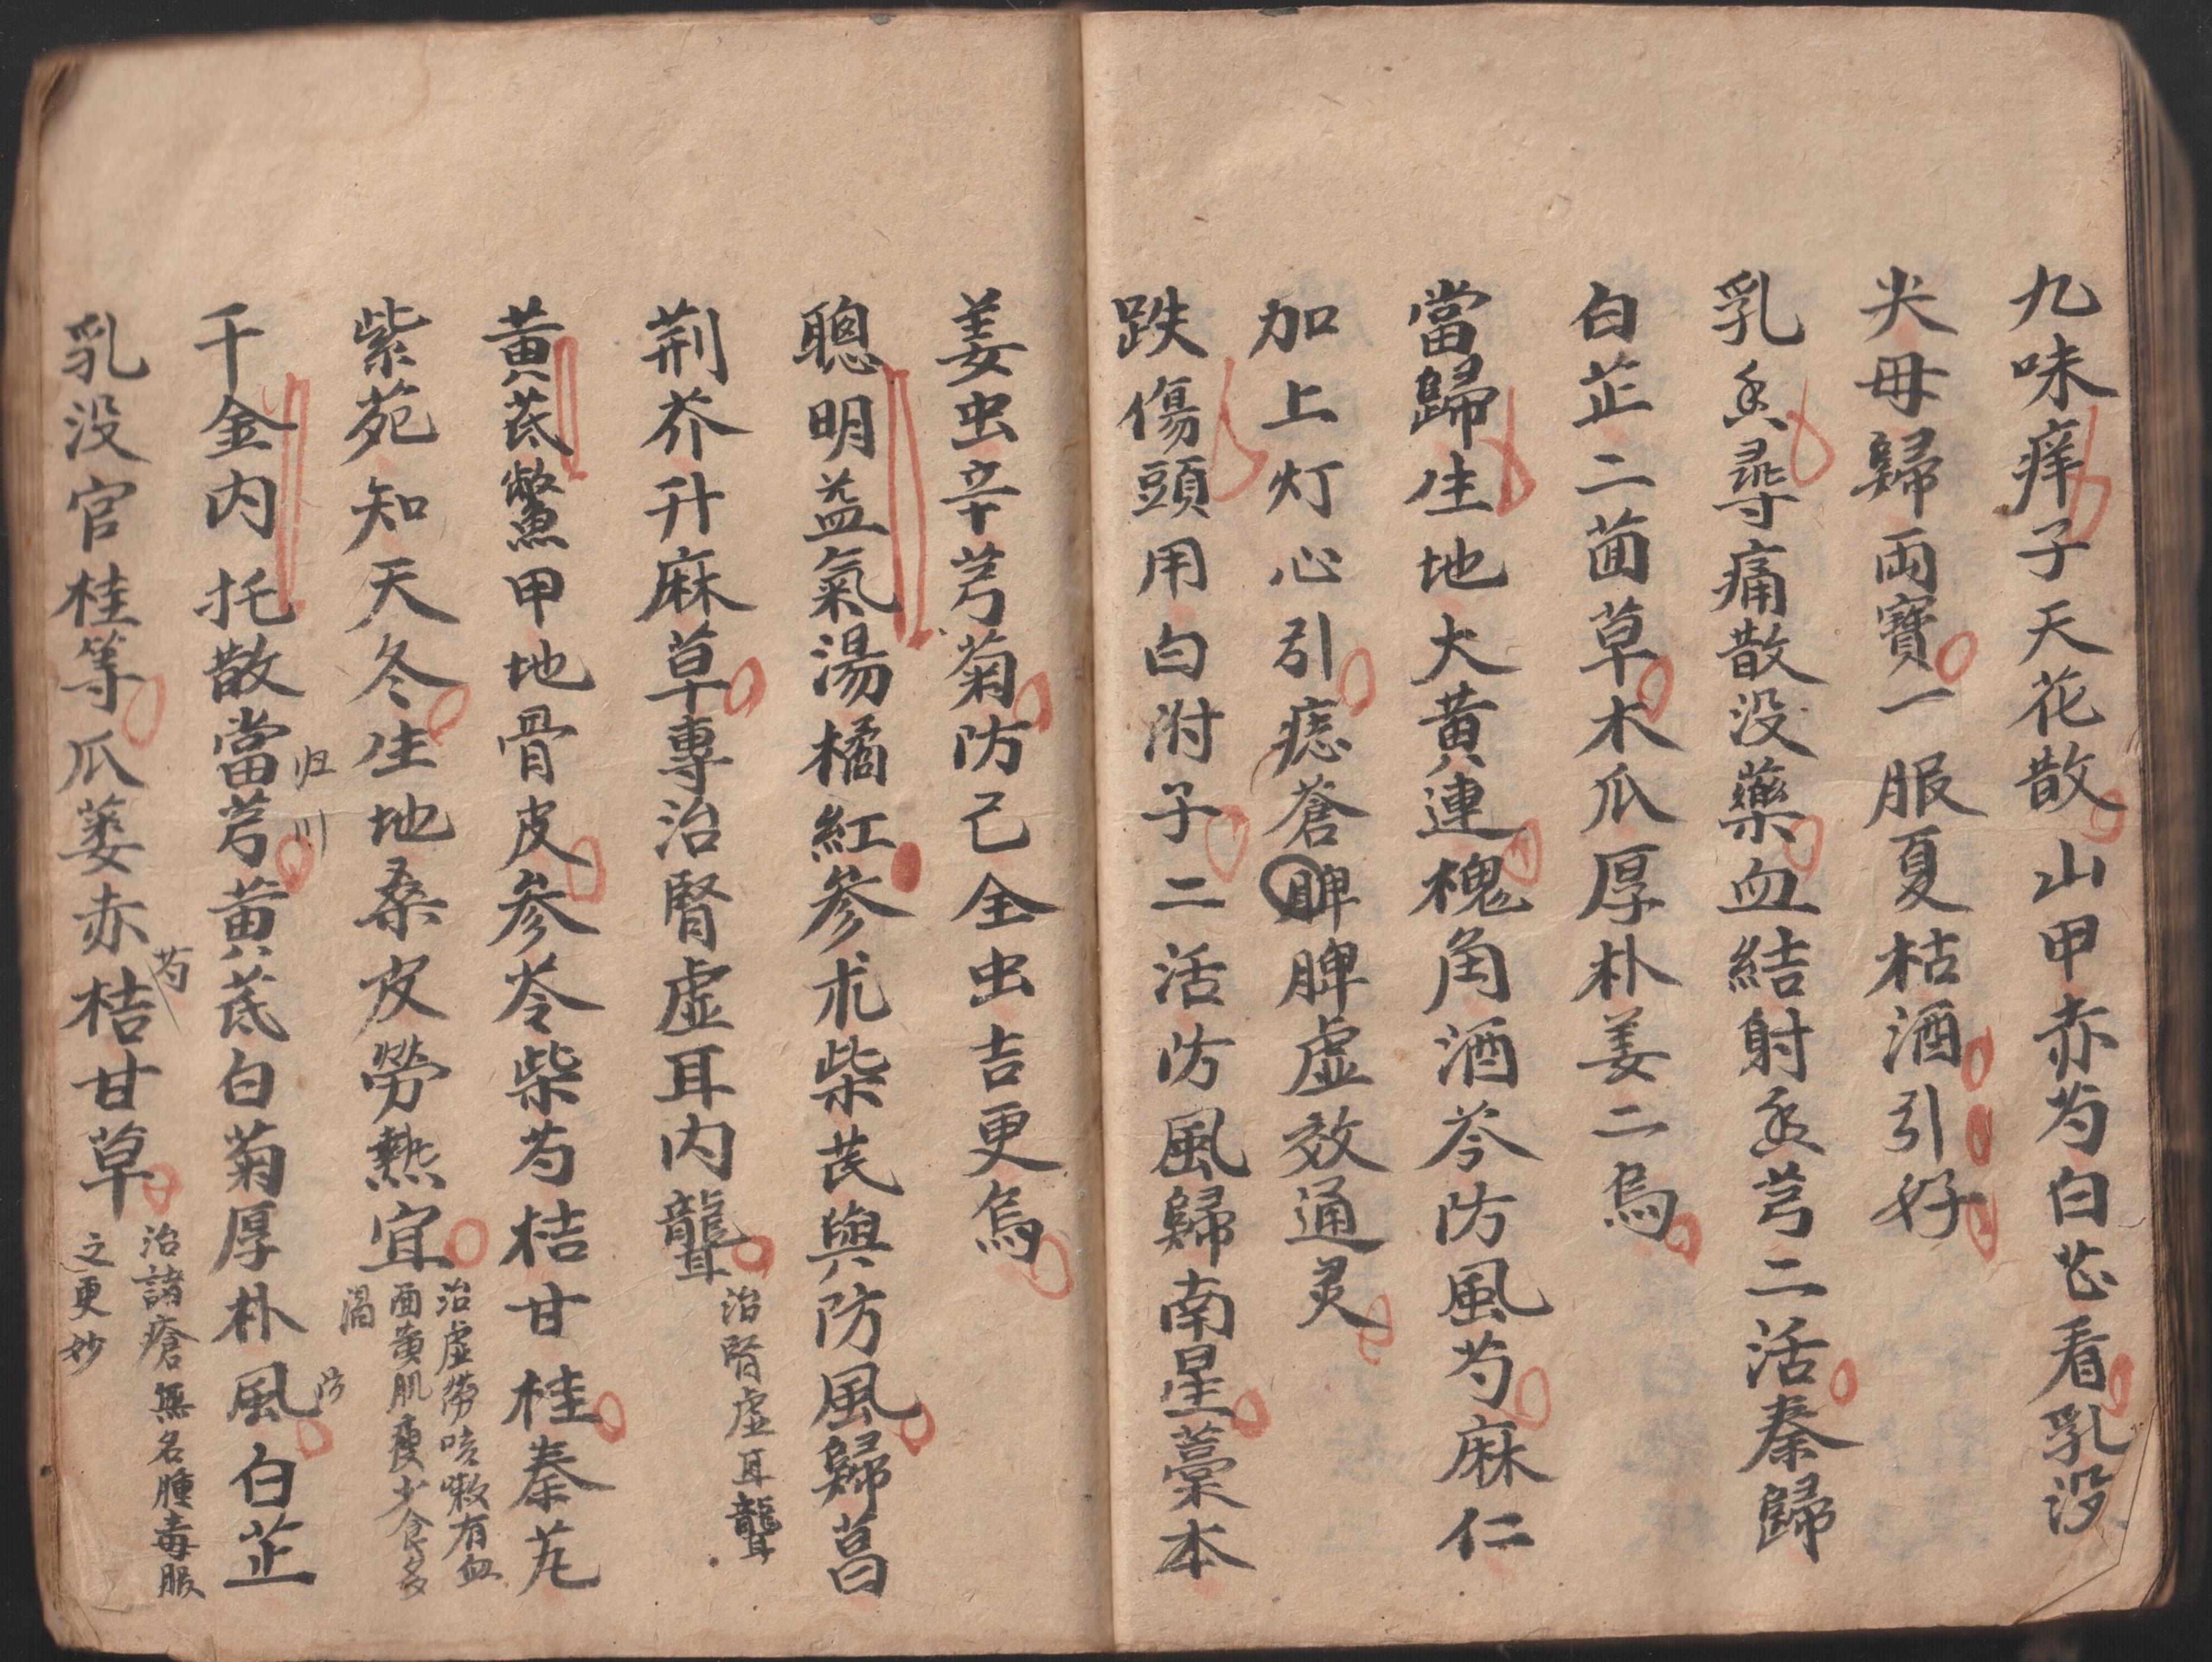 九味痒子天花散山甲赤芍白芷看乳没
尖母歸兩寶一服夏枯酒引好
乳香尋痛散没藥血結射香芎二活秦歸
白芷二茴草木瓜厚朴姜二烏
當歸生地大黄連槐角酒芩防風芍麻仁
加上灯心引痣蒼脾脾虚效通灵
跌傷頭用白附子二活防風歸南星藁本
姜虫辛芎菊防己全虫吉更烏
聰明益氣湯橘紅參朮柴芪與防風歸菖
荆芥升麻草專治腎虚耳内聾
治腎虚耳聾
黄茋鱉甲地骨皮参苓柴芍桔甘桂秦艽
紫苑知天冬生地桑皮勞熱宜
治虚勞咳嗽有血
面黄肌瘦少食多
渴
千金内托散當芎黄茋白菊厚朴風白芷
归川
防
乳没官桂等瓜蒌赤桔甘草
芍
治諸瘡無名腫毒服
之更妙